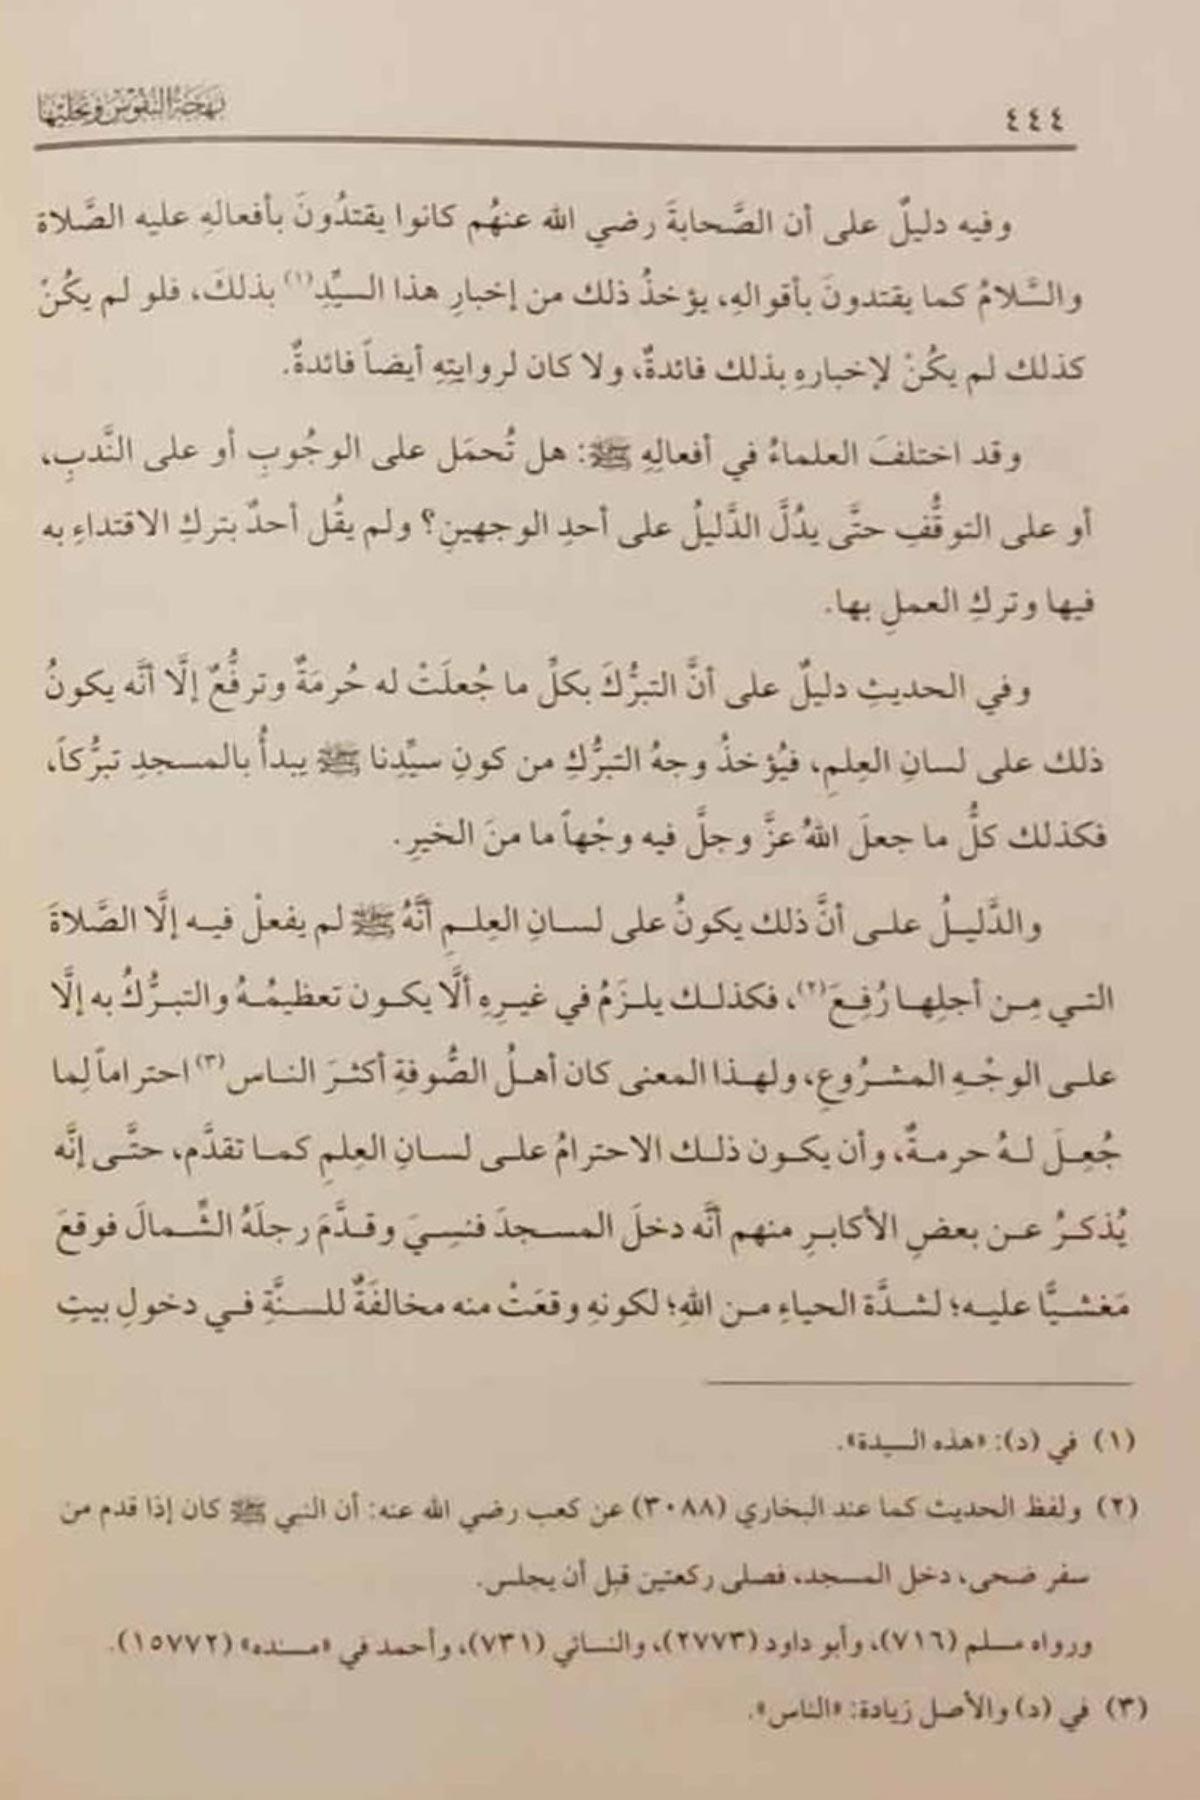 ٤٤٤
بهجة النفوس وتحليها
وفيه دليلٌ على أن الصَّحابةَ رضي الله عنهُم كانوا يقتدُونَ بأفعالهِ عليه الصَّلاة
والسَّلامُ كما يقتدونَ بأقوالهِ، يؤخذُ ذلك من إخبارِ هذا السيِّدِ(١) بذلكَ، فلو لم يكُنْ
كذلك لم يكُنْ لإخبارهِ بذلك فائدةٌ، ولا كان لروايتِهِ أيضاً فائدةٌ.
وقد اختلفَ العلماءُ في أفعالِهِ ﷺ: هل تُحمَل على الوجُوبِ أو على النَّدبِ،
أو على التوقُّفِ حتَّى يدُلَّ الدَّليلُ على أحدِ الوجهينِ؟ ولم يقُل أحدٌ بتركِ الاقتداءِ به
فيها وتركِ العملِ بها.
وفي الحديثِ دليلٌ على أنَّ التبرُّكَ بكلِّ ما جُعلَتْ له حُرمَةٌ وترفُّعٌ إلَّا أنَّه يكونُ
ذلك على لسانِ العِلمِ، فيُؤخذُ وجهُ التبرُّكِ من كونِ سيِّدِنا ﷺ يبدأُ بالمسجدِ تبرُّكاً،
فكذلك كلُّ ما جعلَ اللهُ عزَّ وجلَّ فيه وجْهاً ما منَ الخيرِ.
والدَّليلُ على أنَّ ذلك يكونُ على لسانِ العِلمِ أنَّهُ ﷺ لم يفعلْ فيه إلَّا الصَّلاةَ
التي مِن أجلِها رُفِعَ(٢)، فكذلك يلزَمُ في غيرِهِ ألَّا يكون تعظيمُهُ والتبرُّكُ به إلَّا
على الوجْهِ المشرُوعِ، ولهذا المعنى كان أهلُ الصُّوفةِ أكثرَ الناس(٣) احتراماً لِما
جُعِلَ لهُ حرمةٌ، وأن يكون ذلك الاحترامُ على لسانِ العِلمِ كما تقدَّم، حتَّى إنَّه
يُذكرُ عن بعضِ الأكابرِ منهم أنَّه دخلَ المسجدَ فنسِيَ وقدَّمَ رجلَهُ الشِّمالَ فوقعَ
مَغشيًّا عليه؛ لشدَّة الحياءِ من اللهِ؛ لكونهِ وقعَتْ منه مخالفَةٌ للسنَّةِ في دخولِ بيتِ
(١) في (د): «هذه السيدة».
(٢) ولفظ الحديث كما عند البخاري (٣٠٨٨) عن كعب رضي الله عنه: أن النبي ﷺ كان إذا قدم من
سفر ضحى، دخل المسجد، فصلى ركعتين قبل أن يجلس.
ورواه مسلم (٧١٦)، وأبو داود (٢٧٧٣)، والنسائي (٧٣١)، وأحمد في «مسنده» (١٥٧٧٢).
(٣) في (د) والأصل زيادة: «الناس».